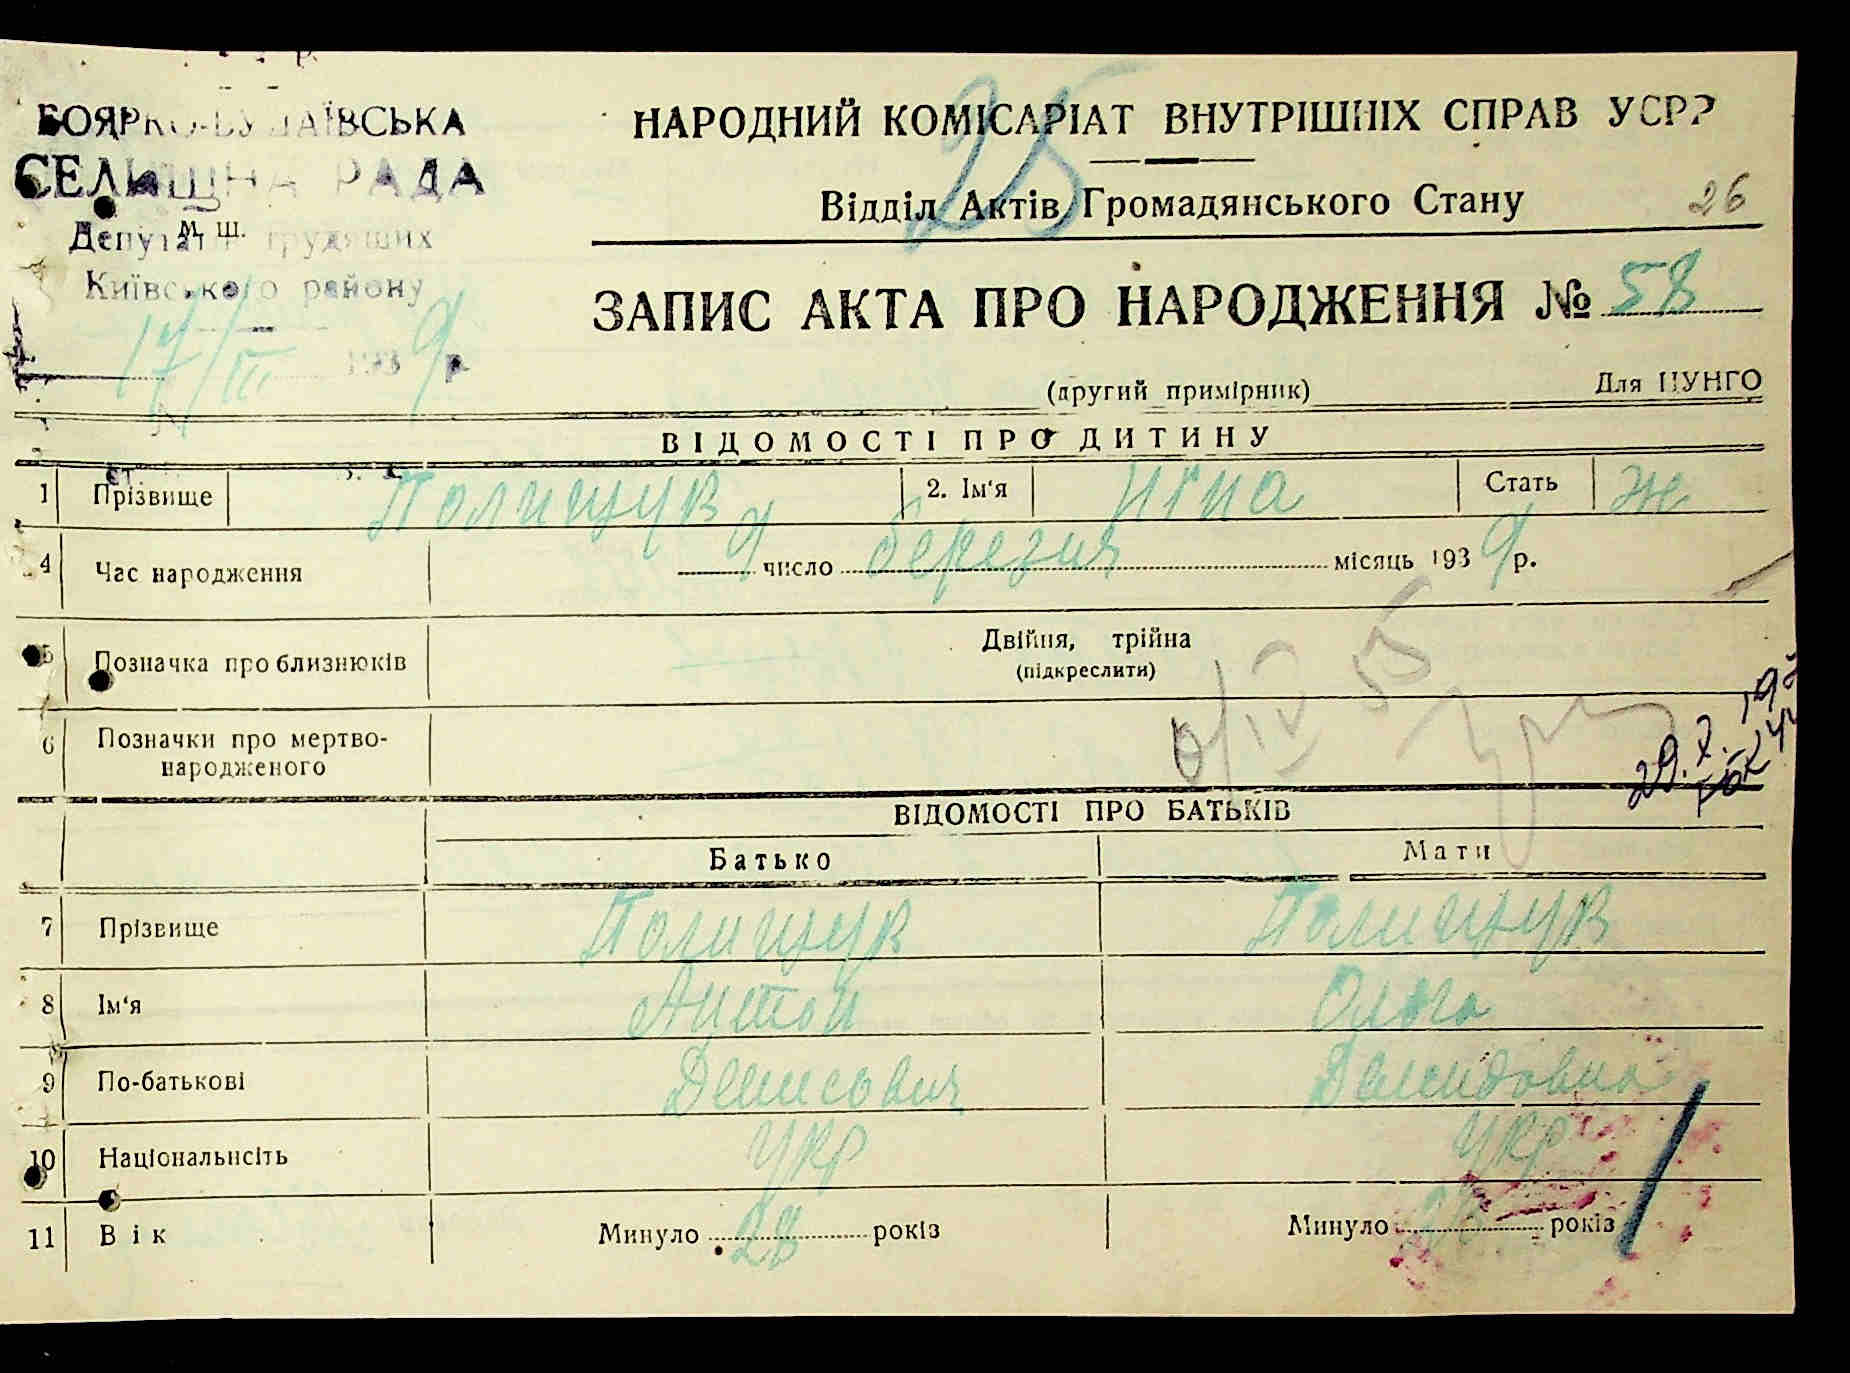 БОЯРКО-БУДАЇВСЬКА
СЕЛИЩНА РАДА
Депутатів трудящих
м. ш.
Київського району
17/III 1939 р.
НАРОДНИЙ КОМІСАРІАТ ВНУТРІШНІХ СПРАВ УСРР
25
Відділ Актів Громадянського Стану
26
ЗАПИС АКТА ПРО НАРОДЖЕННЯ № 58
(другий примірник) Для ЦУНГО
ВІДОМОСТІ ПРО ДИТИНУ
1 Прізвище Полищук 2. Ім'я Стать ж
4 Час народження 9 число березня місяць 1939 р.
5 Позначка про близнюків Двійня, трійна
(підкреслити)
6 Позначки про мертво-
народженого
ВІДОМОСТІ ПРО БАТЬКІВ
Батько Мати
7 Прізвище Полищук Полищук
8 Ім'я Антон Ольга
9 По-батькові Денисович Демидовна
10 Національнсіть укр укр
11 Вік Минуло 28 років Минуло років